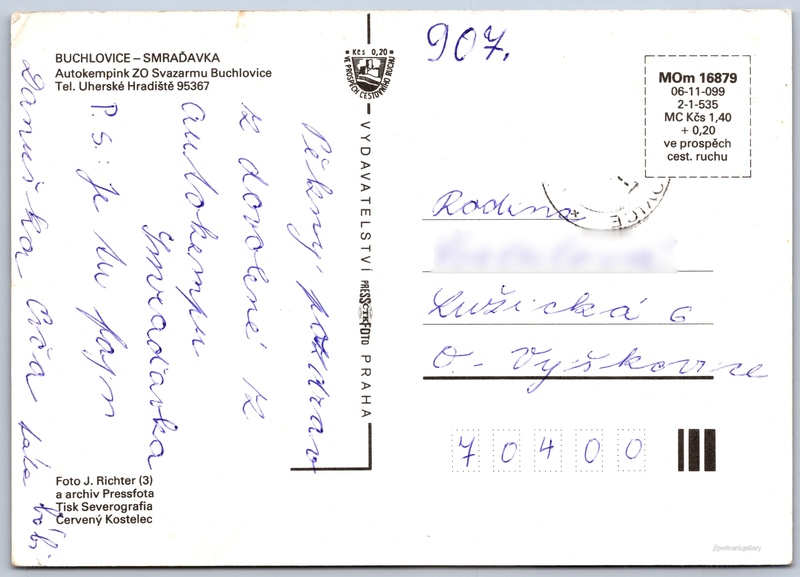 907.
BUCHLOVICE – SMRAĎAVKA
Autokempink ZO Svazarmu Buchlovice
Tel. Uherské Hradiště 95367
Kčs 0,20
VE PROSPĚCH CESTOVNÍHO RUCHU
VYDAVATELSTVÍ PRESSFOTO PRAHA
Pěkný pozdrav
z dovolené z
autokempu
Smraďavka
P.S.: Je tu fajn
Danuška
MOm 16879
06-11-099
2-1-535
MC Kčs 1,40
+ 0,20
ve prospěch
cest. ruchu
OVICE
Rodina
Lužická 6
O-Vyškovice
70400
Foto J. Richter (3)
a archiv Pressfota
Tisk Severografia
Červený Kostelec
//postcard.gallery